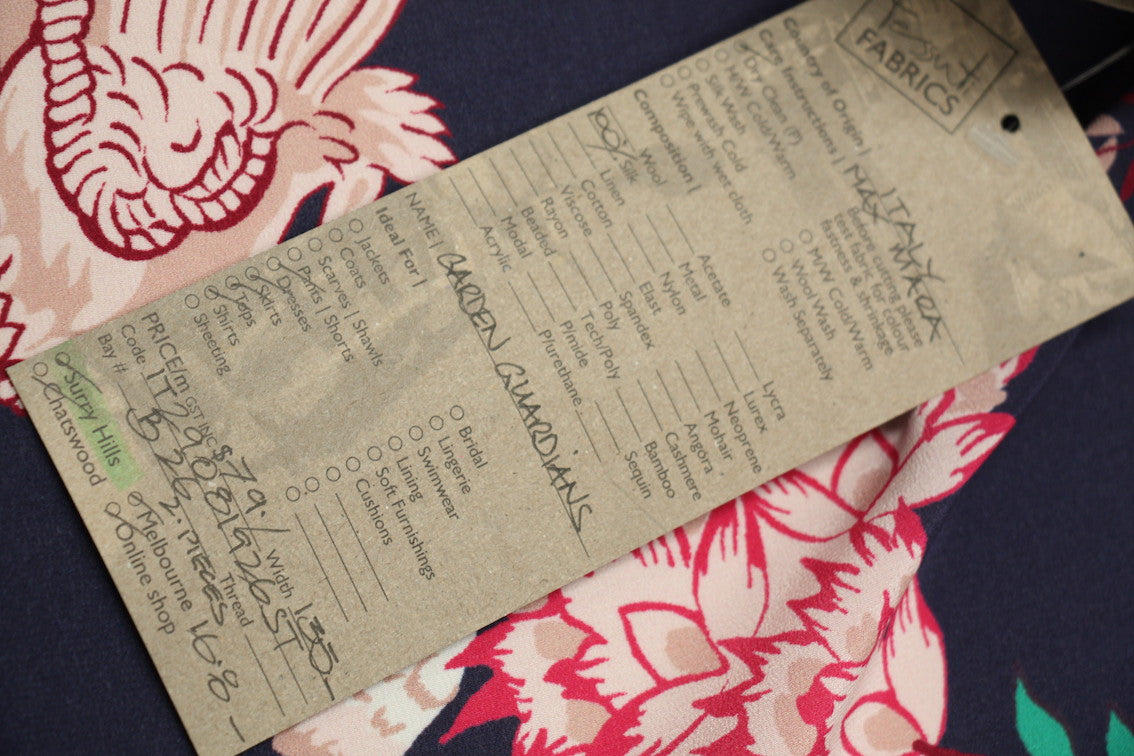 Tessuti
FABRICS
Country of Origin | ITAMYACA
Care Instructions | MAX
Dry Clean (P)
H/W Cold/Warm
Silk Wash
Prewash Cold
Wipe with wet cloth
Before cutting please
test fabric for colour
fastness & shrinkage
M/W Cold/Warm
Wool Wash
Wash Separately
Composition |
Wool
100% Silk
Linen
Cotton
Viscose
Rayon
Beaded
Modal
Acrylic
Acetate
Metal
Nylon
Elast
Spandex
Poly
Tech/Poly
P/mide
P/urethane
Lycra
Lurex
Neoprene
Mohair
Angora
Cashmere
Bamboo
Sequin
NAME | GARDEN GUARDIANS
Ideal For |
Jackets
Coats
Scarves | Shawls
Pants | Shorts
Dresses
Skirts
Tops
Shirts
Sheeting
Bridal
Lingerie
Swimwear
Lining
Soft Furnishings
Cushions
PRICE/m GST INC $79./ Width 135-
Code IT290801926ST
Bay # B262. PIECES Thread
Surry Hills
Chatswood
Melbourne 16.8-
Online shop